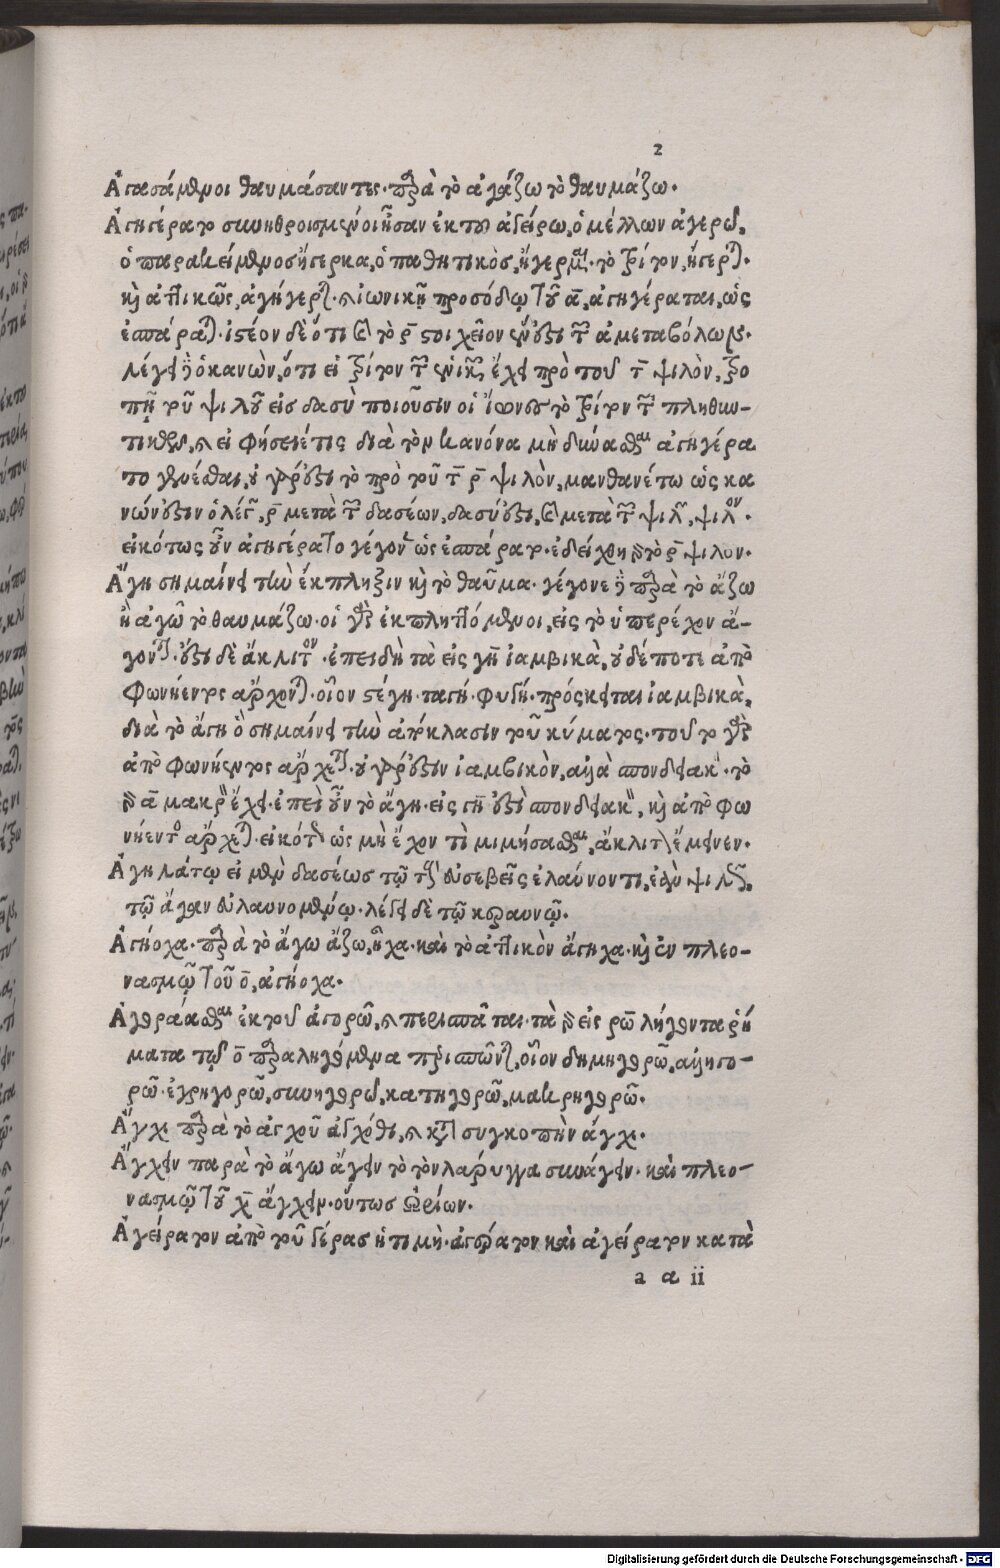 2
Ἀγασάμενοι θαυμάσαντες· παρὰ τὸ ἀγάζω τὸ θαυμάζω.
Ἀγηγέρατο συνηθροισμένοι ἦσαν ἐκ τοῦ ἀγείρω, ὁ μέλλων ἀγερῶ,
ὁ παρακείμενος ἤγερκα, ὁ παθητικὸς, ἤγερμαι· τὸ τρίτον, ἤγερται·
καὶ ἀττικῶς, ἀγήγερται· καὶ ἰωνικῇ προσόδῳ τοῦ α, ἀγηγέραται, ὡς
ἐσπάραται· ἰστέον δὲ ὅτι καὶ τὸ ρ στοιχεῖον ἕν ἐστι τῶν ἀμεταβόλων·
λέγει δὲ ὁ κανὼν, ὅτι εἰ τρίτον τῶν ἑνικῶν, ἔχει πρὸ τοῦ τ ψιλὸν, τρο
πῇ τοῦ ψιλοῦ εἰς δασὺ ποιοῦσιν οἱ ἴωνες τὸ τρίτον τῶν πληθυν-
τικῶν, καὶ εἰ φήσειέ τις διὰ τὸν κανόνα μὴ δύνασθαι ἀγηγέρα
το γενέσθαι, οὐ γάρ ἐστι τὸ πρὸ τοῦ τ ρ ψιλὸν, μανθανέτω ὡς κα
νών ἐστιν ὁ λέγων, ρ μετὰ τῶν δασέων, δασύ ἐστι, καὶ μετὰ τῶν ψιλῶν, ψιλόν·
εἰκότως οὖν ἀγηγέρατο γέγονεν ὡς ἐσπάρατο· ἐδείχθη γὰρ τὸ ρ ψιλόν.
Ἄγη σημαίνει τὴν ἔκπληξιν καὶ τὸ θαῦμα· γέγονε δὲ παρὰ τὸ ἄζω
ἢ ἀγῶ τὸ θαυμάζω· οἱ γὰρ ἐκπληττόμενοι, εἰς τὸ ὑπερέχον ἄ-
γονται· ἔστι δὲ ἄκλιτον· ἐπειδὴ τὰ εἰς γη ἰαμβικὰ, οὐδέποτε ἀπὸ
φωνήεντος ἄρχονται· οἷον στέγη· ταγή· φυγή· πρόσκειται ἰαμβικὰ,
διὰ τὸ ἄγη ὃ σημαίνει τὴν ἀνάκλασιν τοῦ κύματος· τοῦτο γὰρ
ἀπὸ φωνήεντος ἄρχεται· οὐ γάρ ἐστιν ἰαμβικὸν, ἀλλὰ σπονδειακόν· τὸ
γὰρ α μακρὸν ἔχει· ἐπεὶ οὖν τὸ ἄγη· εἰς γη ἐστὶ σπονδειακὸν, καὶ ἀπὸ φω
νήεντος ἄρχεται· εἰκότως ὡς μὴ ἔχον τὶ μιμήσασθαι, ἄκλιτον ἔμεινεν.
Ἀγηλάτῳ εἰ μὲν δασέως τῷ τοὺς δυσεβεῖς ἐλαύνοντι, ἐὰν ψιλῶς,
τῷ ἄγαν ἐλαυνομένῳ· λέγει δὲ τῷ κεραυνῷ.
Ἀγήοχα· παρὰ τὸ ἄγω ἄξω, ἦχα· καὶ τὸ ἀττικὸν ἄγηχα· καὶ ἐν πλεο-
νασμῷ τοῦ ο, ἀγήοχα.
Ἀγοράασθαι ἐκ τοῦ ἀγορῶ, καὶ περισπᾶται· τὰ γὰρ εἰς ρῶ λήγοντα ῥή
ματα τῷ ο παραληγόμενα περισπῶνται, οἷον δημηγορῶ, ἀλληγο-
ρῶ· ἐγρηγορῶ, συνηγορῶ, κατηγορῶ, μακρηγορῶ.
Ἄγχι παρὰ τὸ ἀγχοῦ ἀγχόθι, καὶ κατὰ συγκοπὴν ἄγχι.
Ἄγχειν παρὰ τὸ ἄγω ἄγειν τὸ τὸν λάρυγγα συνάγειν· καὶ πλεο-
νασμῷ τοῦ χ ἄγχειν· οὕτως Ὠρίων.
Ἀγείρατον ἀπὸ τοῦ γέρας ἡ τιμὴ· ἀγέρατον καὶ ἀγείρατον κατὰ
a α ii
Digitalisierung gefördert durch die Deutsche Forschungsgemeinschaft - DFG